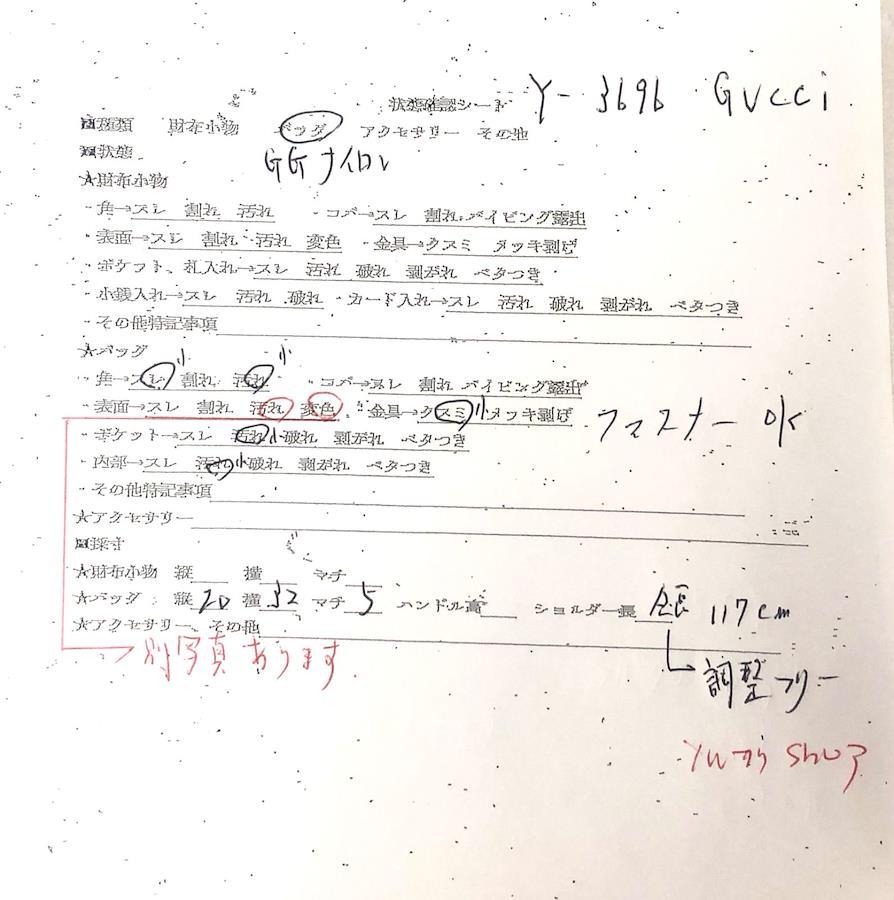 状態確認シート Y-3696 GUCCI
種類 財布小物 バッグ アクセサリー その他
状態 GGナイロン
★財布小物
・角→スレ 割れ 汚れ ・コバ→スレ 割れ パイピング露出
・表面→スレ 割れ 汚れ 変色 ・金具→クスミ メッキ剥げ
・ポケット、札入れ→スレ 汚れ 破れ 剥がれ ベタつき
・小銭入れ→スレ 汚れ 破れ ・カード入れ→スレ 汚れ 破れ 剥がれ ベタつき
・その他特記事項
★バッグ
・角→スレ小 割れ 汚れ小 ・コバ→スレ 割れ パイピング露出
・表面→スレ 割れ 汚れ 変色 ・金具→クスミ小 メッキ剥げ ファスナー OK
・ポケット→スレ 汚れ小 破れ 剥がれ ベタつき
・内部→スレ 汚れ小 破れ 剥がれ ベタつき
・その他特記事項
★アクセサリー
採寸
★財布小物 縦 横 マチ
★バッグ 縦 20 横 32 マチ 5 ハンドル高 ショルダー長 全長 117cm
★アクセサリー その他
別写真あります 調整フリー